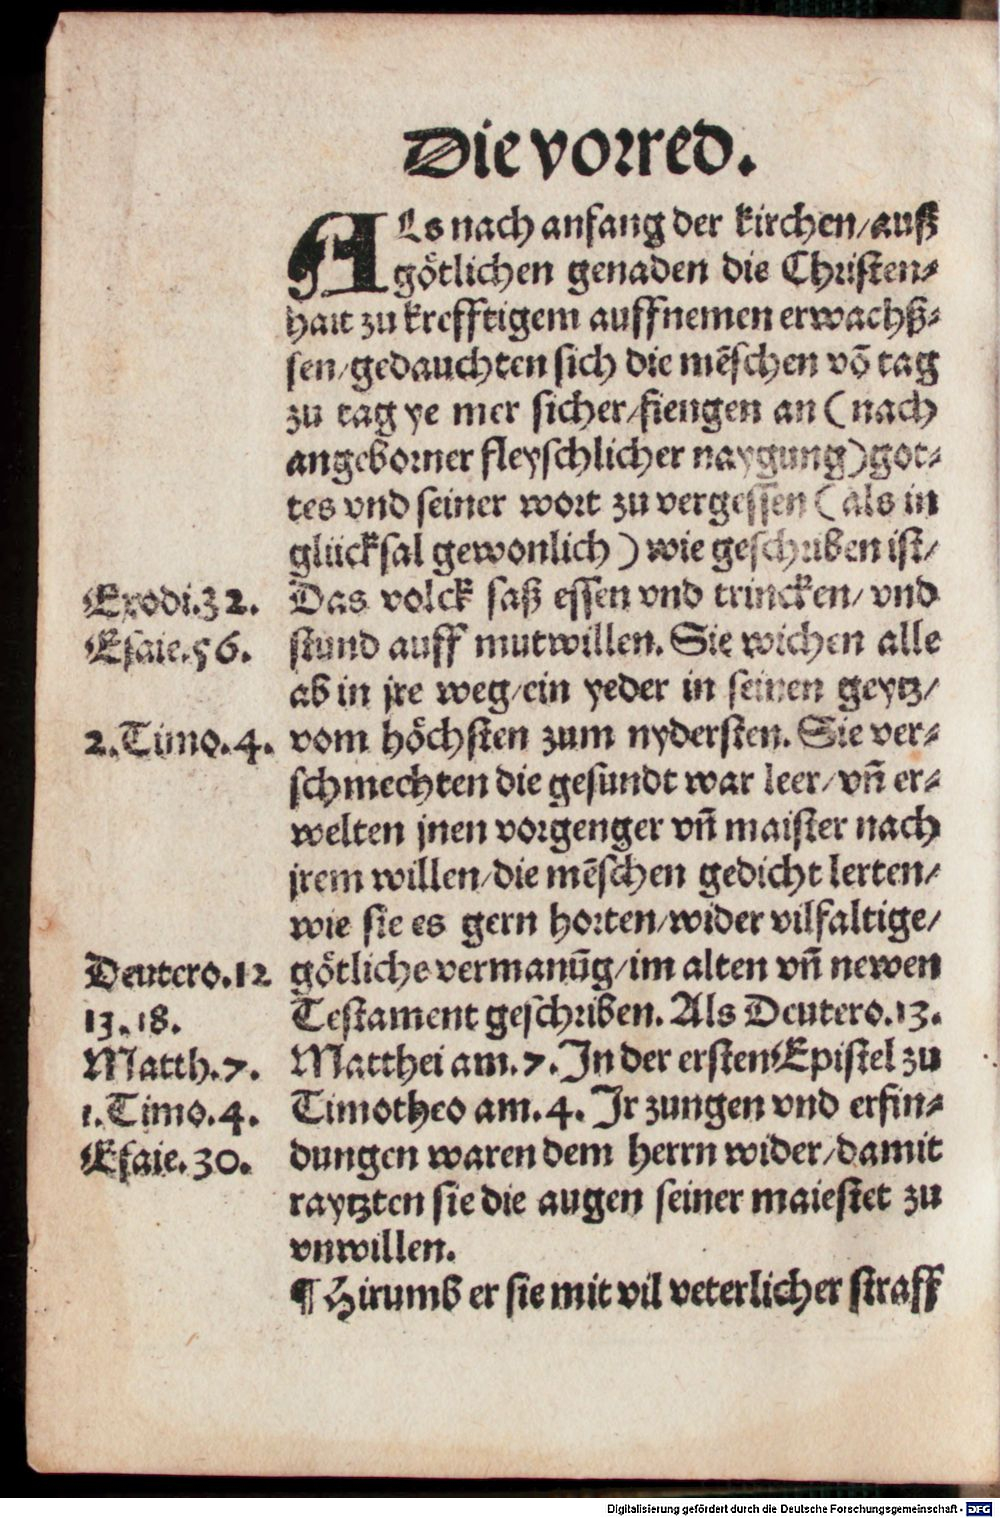 Die vorred.
ALs nach anfang der kirchen/auß
götlichen genaden die Christen⸗
hait zu krefftigem auffnemen erwachß⸗
sen/gedauchten sich die mēschen vō tag
zu tag ye mer sicher/fiengen an (nach
angeborner fleyschlicher naygung) got⸗
tes vnd seiner wort zu vergessen (als in
glücksal gewonlich) wie geschriben ist/
Exodi.32. Das volck saß essen vnd trincken/vnd
Esaie.56. stund auff mutwillen. Sie wichen alle
ab in jre weg/ein yeder in seinen geytz/
2.Timo.4. vom höchsten zum nydersten. Sie ver⸗
schmechten die gesundt war leer/vn̄ er⸗
welten jnen vorgenger vn̄ maister nach
jrem willen/die mēschen gedicht lerten/
wie sie es gern horten/wider vilfaltige/
Deutero.12 götliche vermanūg/im alten vn̄ newen
13.18. Testament geschriben. Als Deutero.13.
Matth.7. Matthei am.7. In der ersten Epistel zu
1.Timo.4. Timotheo am.4. Ir zungen vnd erfin⸗
Esaie.30. dungen waren dem herrn wider/damit
raytzten sie die augen seiner maiestet zu
vnwillen.
¶ Hirumb er sie mit vil veterlicher straff
Digitalisierung gefördert durch die Deutsche Forschungsgemeinschaft - DFG